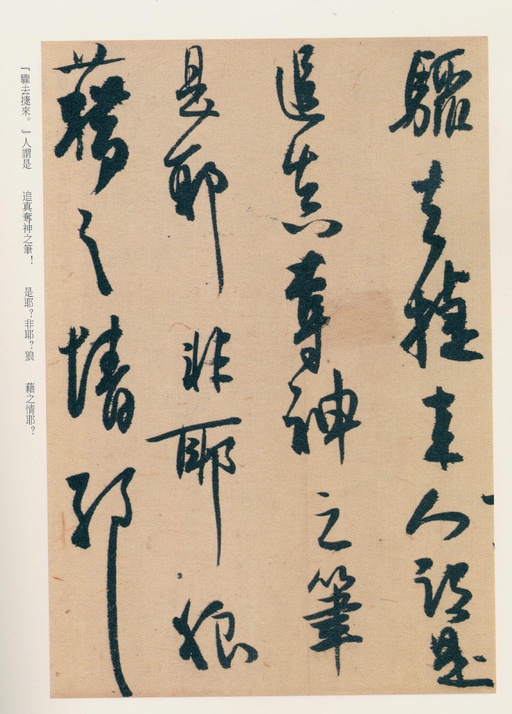 驪去揵来人謂是
追真奪神之筆
是耶非耶狼
藉之情耶
『驟去捷來。』人謂是 追真奪神之筆！ 是耶？非耶？狼 藉之情耶？